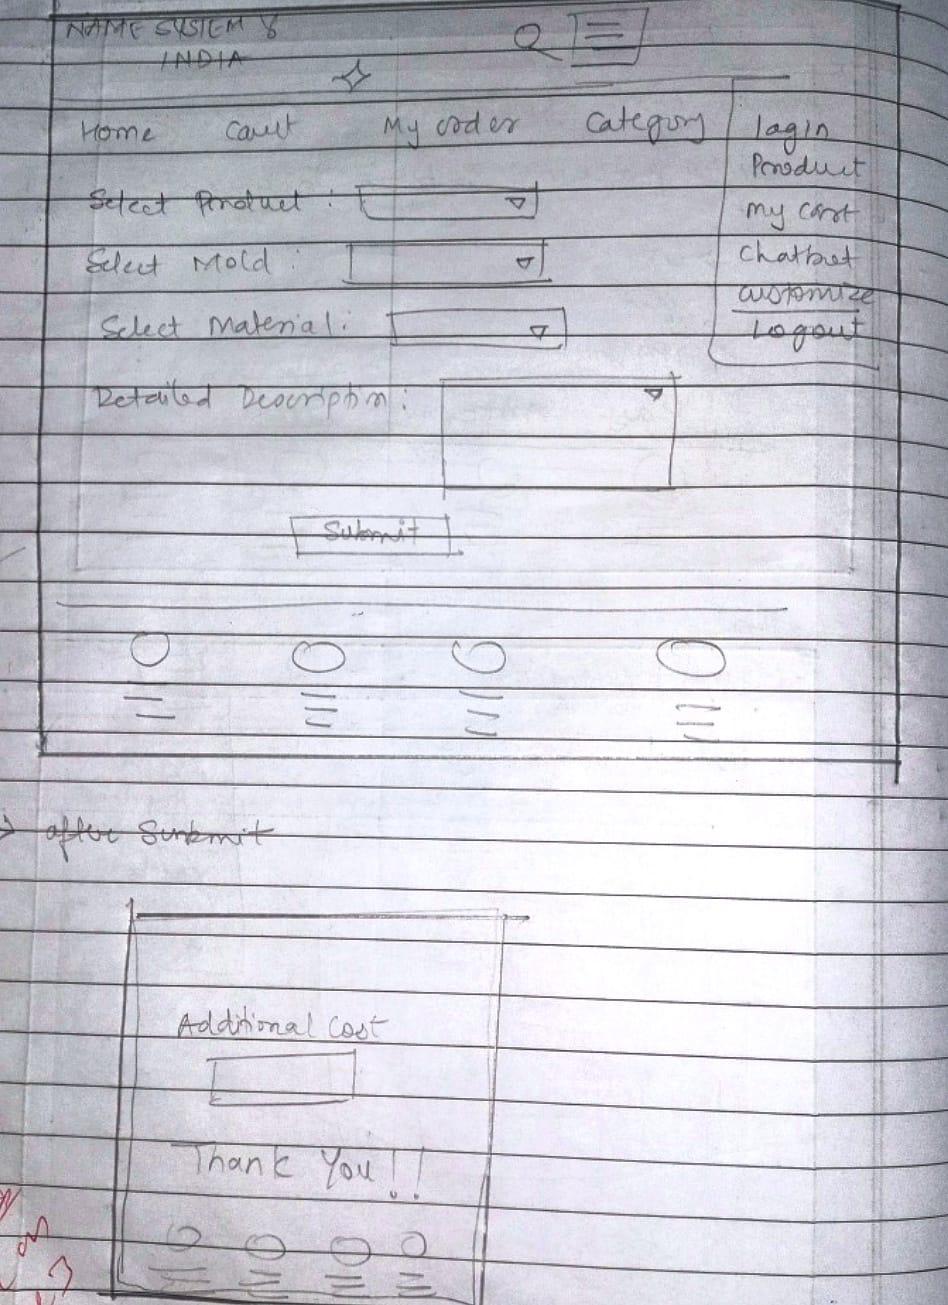 NAME SYSTEM &
INDIA
Home Caut My order Category
login
Product
My cart
Chatbot
customize
Logout
Select Product :
Select Mold :
Select Material :
Detailed Description :
Submit
→ after Sunbmit
Additional Cost
Thank You !!